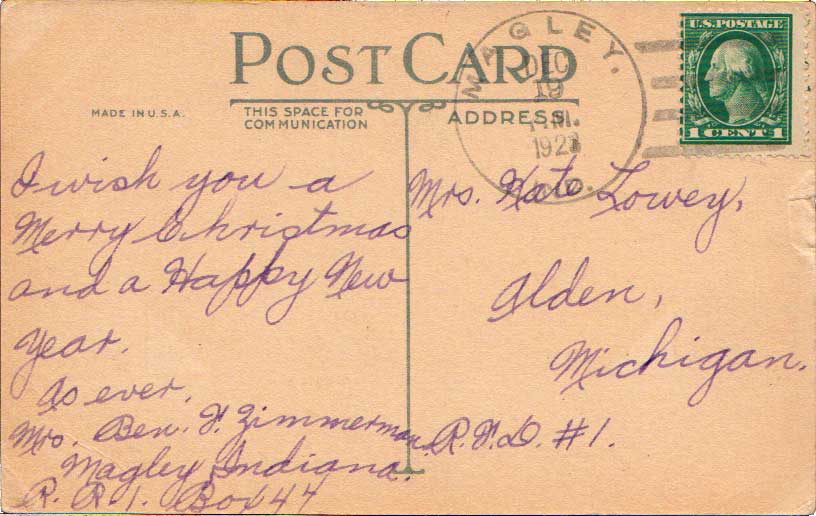 POST CARD
MADE IN U.S.A.
THIS SPACE FOR
COMMUNICATION
ADDRESS
MAGLEY,
DEC
19
M.
IND.
U.S. POSTAGE
1 CENT 1
I wish you a
Merry Christmas
and a Happy New
Year.
As ever,
Mrs. Ben. F. Zimmerman.
Magley, Indiana.
R. R. 1. Box 44
Mrs. Kate Lowey,
Alden,
Michigan.
R.F.D. #1.